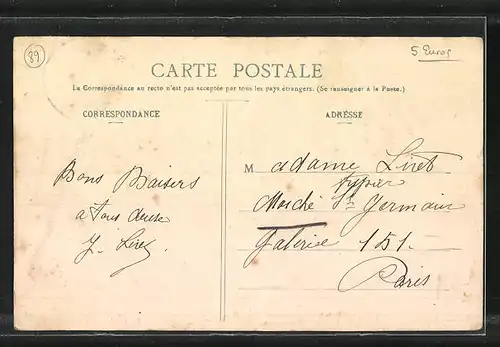 89
5 Euros
CARTE POSTALE
La Correspondance au recto n'est pas acceptée par tous les pays étrangers. (Se renseigner à la Poste.)
CORRESPONDANCE
ADRESSE
Bons Baisers
a tous deux
J. Liret
Madame Liret
Marché St Germain
Galerie 151.
Paris